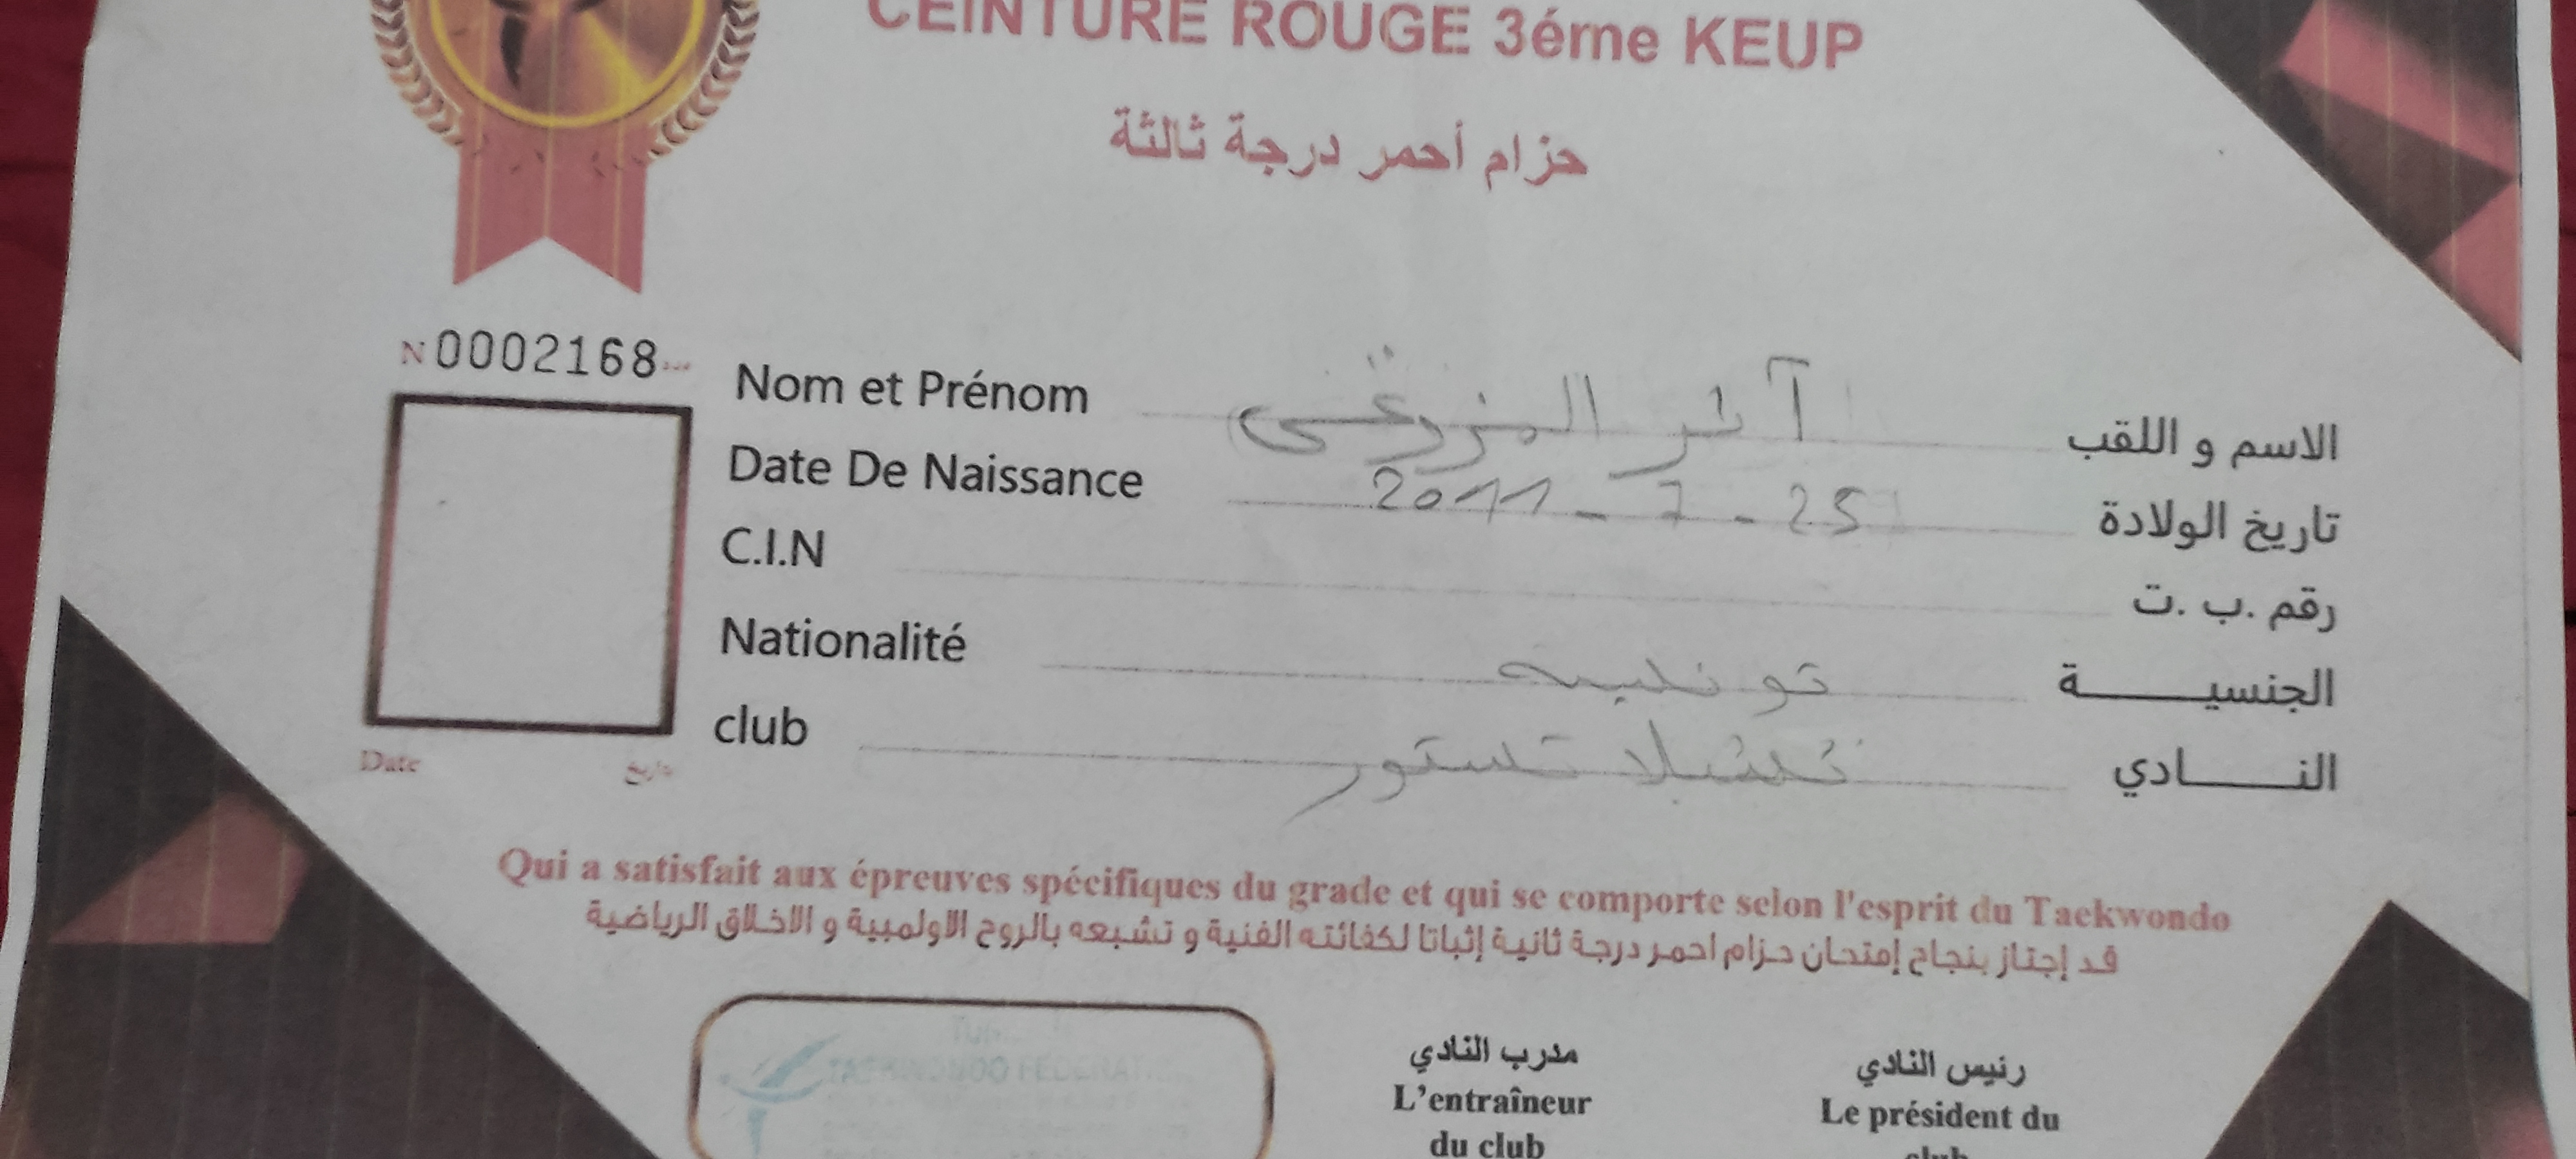 CEINTURE ROUGE 3éme KEUP
حزام أحمر درجة ثالثة
N 0002168
Nom et Prénom المزوغي الاسم و اللقب
Date De Naissance 25 - 7 - 2011 تاريخ الولادة
C.I.N رقم .ب .ت
Nationalité تونسية الجنسيـــــة
club تستور النـــــادي
Date تاريخ
Qui a satisfait aux épreuves spécifiques du grade et qui se comporte selon l'esprit du Taekwondo
قد إجتاز بنجاح إمتحان حزام احمر درجة ثانية إثباتا لكفائته الفنية و تشبعه بالروح الاولمبية و الاخلاق الرياضية
TAEKWONDO FEDERATI
مدرب النادي
L'entraîneur
du club
رئيس النادي
Le président du
club